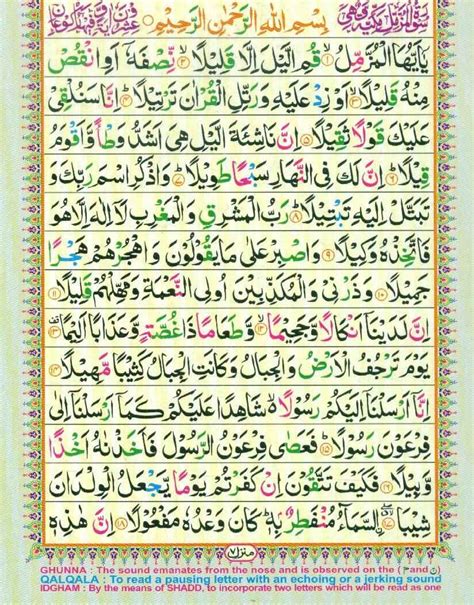 بِسْمِ اللّٰهِ الرَّحْمٰنِ الرَّحِيْمِ
يٰۤاَيُّهَا الْمُزَّمِّلُ ۙ﴿۱﴾ قُمِ الَّيْلَ اِلَّا قَلِيْلًا ۙ﴿۲﴾ نِّصْفَهٗۤ اَوِ انْقُصْ
مِنْهُ قَلِيْلًا ۙ﴿۳﴾ اَوْ زِدْ عَلَيْهِ وَرَتِّلِ الْقُرْاٰنَ تَرْتِيْلًا ؕ﴿۴﴾ اِنَّا سَنُلْقِيْ
عَلَيْكَ قَوْلًا ثَقِيْلًا ﴿۵﴾ اِنَّ نَاشِئَةَ الَّيْلِ هِيَ اَشَدُّ وَطْاً وَّاَقْوَمُ
قِيْلًا ؕ﴿۶﴾ اِنَّ لَكَ فِي النَّهَارِ سَبْحًا طَوِيْلًا ؕ﴿۷﴾ وَاذْكُرِ اسْمَ رَبِّكَ وَ
تَبَتَّلْ اِلَيْهِ تَبْتِيْلًا ؕ﴿۸﴾ رَبُّ الْمَشْرِقِ وَالْمَغْرِبِ لَاۤ اِلٰهَ اِلَّا هُوَ
فَاتَّخِذْهُ وَكِيْلًا ﴿۹﴾ وَاصْبِرْ عَلٰى مَا يَقُوْلُوْنَ وَاهْجُرْهُمْ هَجْرًا
جَمِيْلًا ﴿۱۰﴾ وَذَرْنِيْ وَالْمُكَذِّبِيْنَ اُولِي النَّعْمَةِ وَمَهِّلْهُمْ قَلِيْلًا ﴿۱۱﴾
اِنَّ لَدَيْنَاۤ اَنْكَالًا وَّجَحِيْمًا ۙ﴿۱۲﴾ وَّطَعَامًا ذَا غُصَّةٍ وَّعَذَابًا اَلِيْمًا ﴿۱۳﴾
يَوْمَ تَرْجُفُ الْاَرْضُ وَالْجِبَالُ وَكَانَتِ الْجِبَالُ كَثِيْبًا مَّهِيْلًا ﴿۱۴﴾
اِنَّاۤ اَرْسَلْنَاۤ اِلَيْكُمْ رَسُوْلًا ۙ شَاهِدًا عَلَيْكُمْ كَمَاۤ اَرْسَلْنَاۤ اِلٰى
فِرْعَوْنَ رَسُوْلًا ؕ﴿۱۵﴾ فَعَصٰى فِرْعَوْنُ الرَّسُوْلَ فَاَخَذْنٰهُ اَخْذًا
وَّبِيْلًا ﴿۱۶﴾ فَكَيْفَ تَتَّقُوْنَ اِنْ كَفَرْتُمْ يَوْمًا يَّجْعَلُ الْوِلْدَانَ
شِيْبًا ﴿۱۷﴾ السَّمَآءُ مُنْفَطِرٌۢ بِهٖ ؕ كَانَ وَعْدُهٗ مَفْعُوْلًا ﴿۱۸﴾ اِنَّ هٰذِهٖ
منزل ۷
GHUNNA : The sound emanates from the nose and is observed on the (م and ن)
QALQALA : To read a pausing letter with an echoing or a jerking sound
IDGHAM : By the means of SHADD, to incorporate two letters which will be read as one